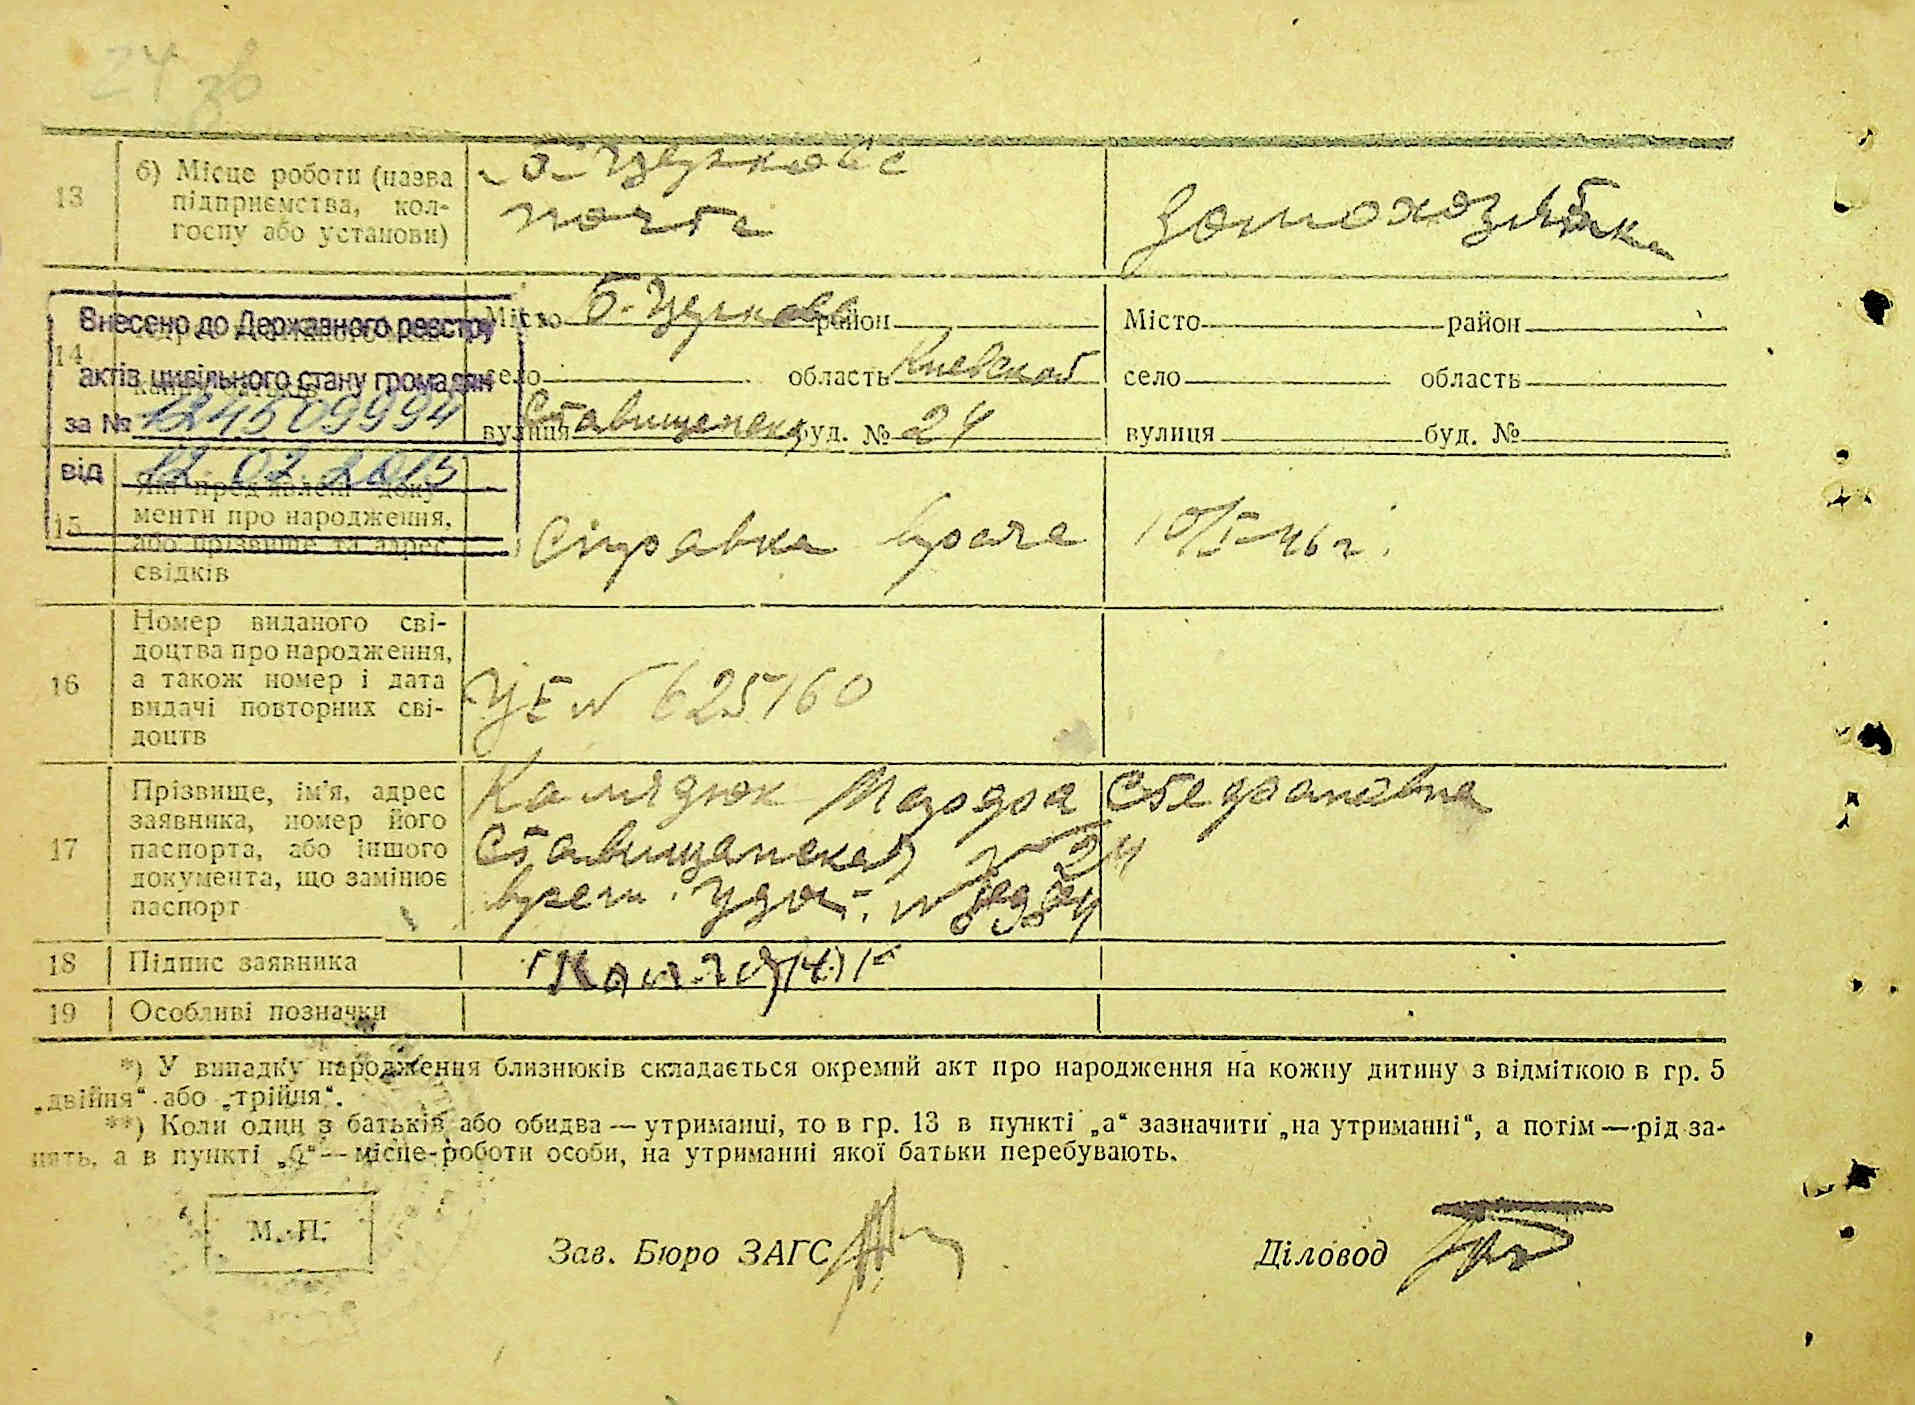 24 зв
13
б) Місце роботи (назва
підприємства, кол-
госпу або установи)
Б-Церковс
почта
домохозяйка
Внесено до Державного реєстру
актів цивільного стану громадян
за № 124509994
від 12.02.2015
14
Місто Б-Церковь район
село область Киевской
вулиця Ставищенска буд. № 24
Місто район
село область
вулиця буд. №
15
Які пред'явлені доку-
менти про народження,
або прізвище та адрес
свідків
Справка врача
10/I-46 г.
16
Номер виданого сві-
доцтва про народження,
а також номер і дата
видачі повторних сві-
доцтв
№ 625160
17
Прізвище, ім'я, адрес
заявника, номер його
паспорта, або іншого
документа, що замінює
паспорт
24
врем. удос. №
18
Підпис заявника
19
Особливі позначки
*) У випадку народження близнюків складається окремий акт про народження на кожну дитину з відміткою в гр. 5
„двійня“ або „трійня“.
**) Коли один з батьків або обидва — утриманці, то в гр. 13 в пункті „а“ зазначити „на утриманні“, а потім — рід за-
нять, а в пункті „б“ — місце роботи особи, на утриманні якої батьки перебувають.
М. П.
Зав. Бюро ЗАГС
Діловод